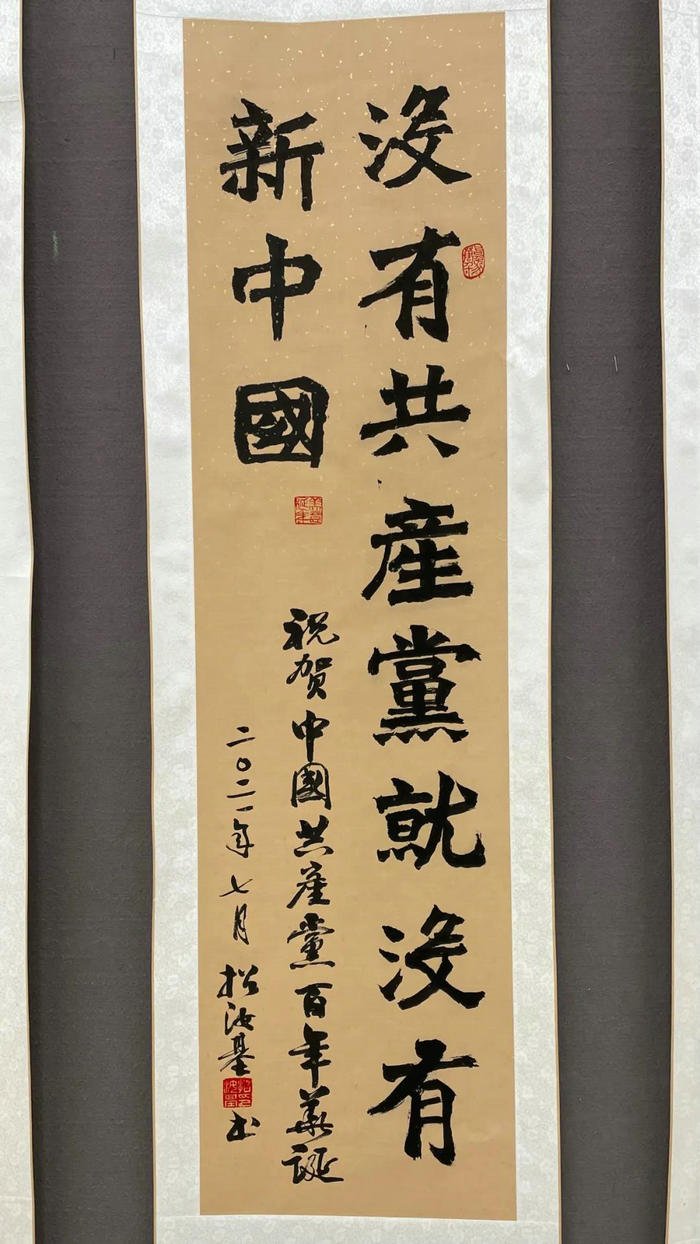 沒有共産黨就沒有
新中國
祝贺中國共産黨百年華誕
二〇二一年七月招汝基书